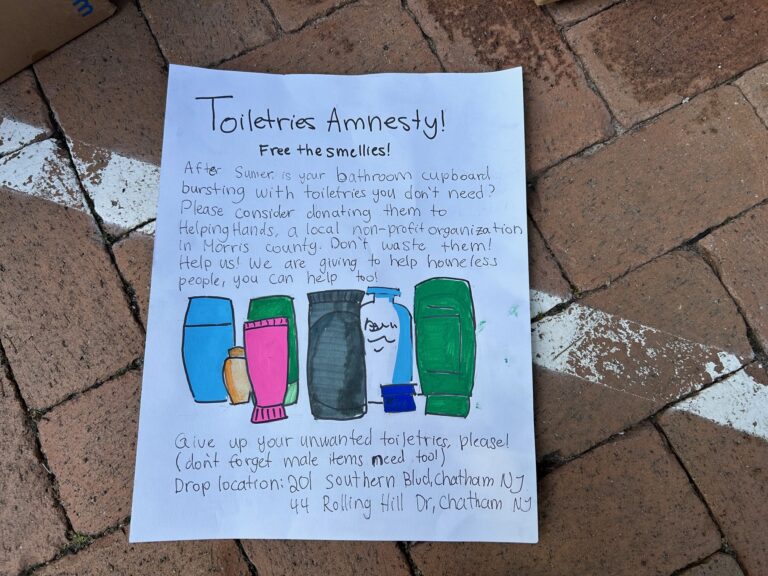 Toiletries Amnesty!
Free the smellies!
After Sumer is your bathroom cupboard
bursting with toiletries you don't need?
Please consider donating them to
Helping Hands, a local non-profit organization
in Morris county. Don't waste them!
Help us! We are giving to help homeless
people, you can help too!
Give up your unwanted toiletries, please!
(don't forget male items need too!)
Drop location: 201 Southern Blvd, Chatham NJ
44 Rolling Hill Dr, Chatham NJ